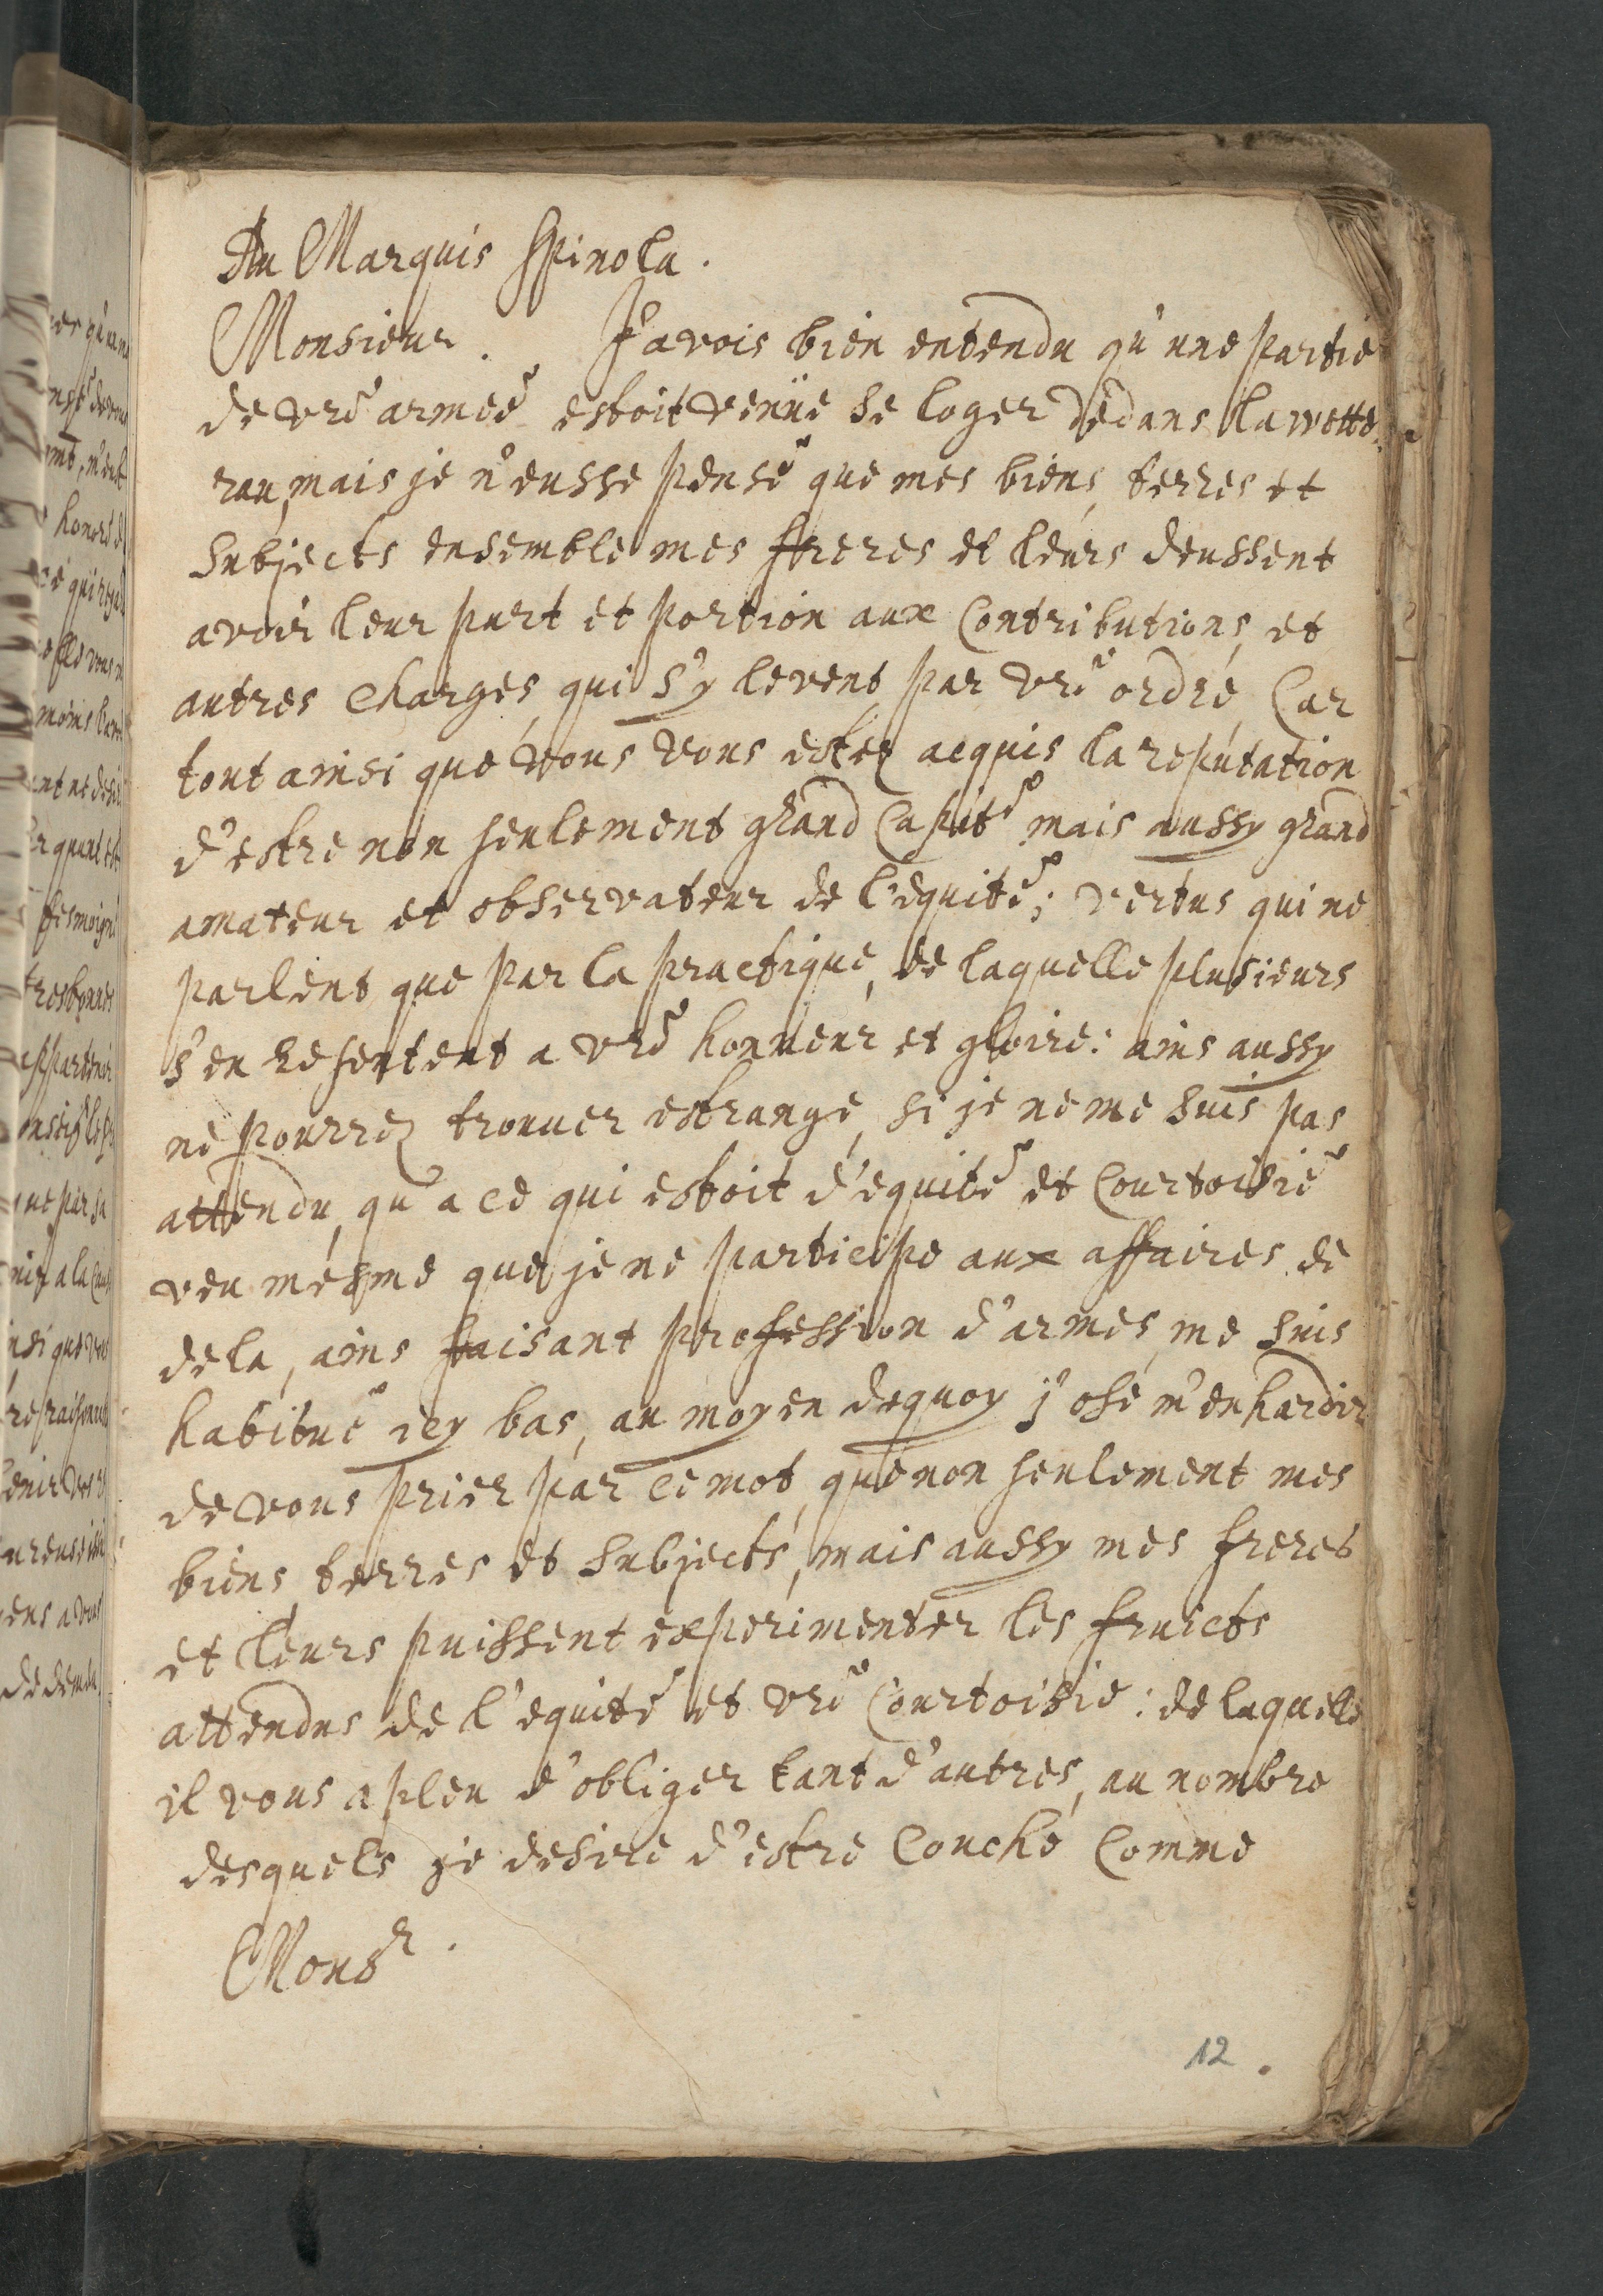 Au Marquis Spinola.
Monsieur. J'avois bien entendu qu'une partie
de vrē armeé estoit venüe se loger dedans la wette,
rau, mais je n'eusse pensé que mes biens, terres et
subjects ensemble mes freres et leurs deussent
avoir leur part et portion aux Contributions, et
autres charges, qui s'y levent par vrē ordre, Car
tout ainsi que vous vous estez acquis la reputation
d'estre non seulement grand Capitē mais aussy grand
amateur et observateur de l'equité; vertus qui ne
parlent que par la practique, de laquelle plusieurs
s'en resentent a vrē honneur et gloire: ains aussy
ne pourrez trouver estrange, si je ne me suis pas
attendu, qu'a ce qui estoit d'equité et Courtoisie
veu mésme que je ne participe aux affaires de
dela, ains faisant profession d'armes, me suis
habitué icy bas, au moyen dequoy j'ose m'enhardir
de vous prier par ce mot, que non seulement mes
biens terres et subjects, mais aussy mes freres
et leurs puissent experimenter les fruicts
attendus de l'equité et vrē Courtoisie: de laquelle
il vous a pleu d'obliger tant d'autres, au nombre
desquels je desire d'estre Couché Comme
Monsr.
12.